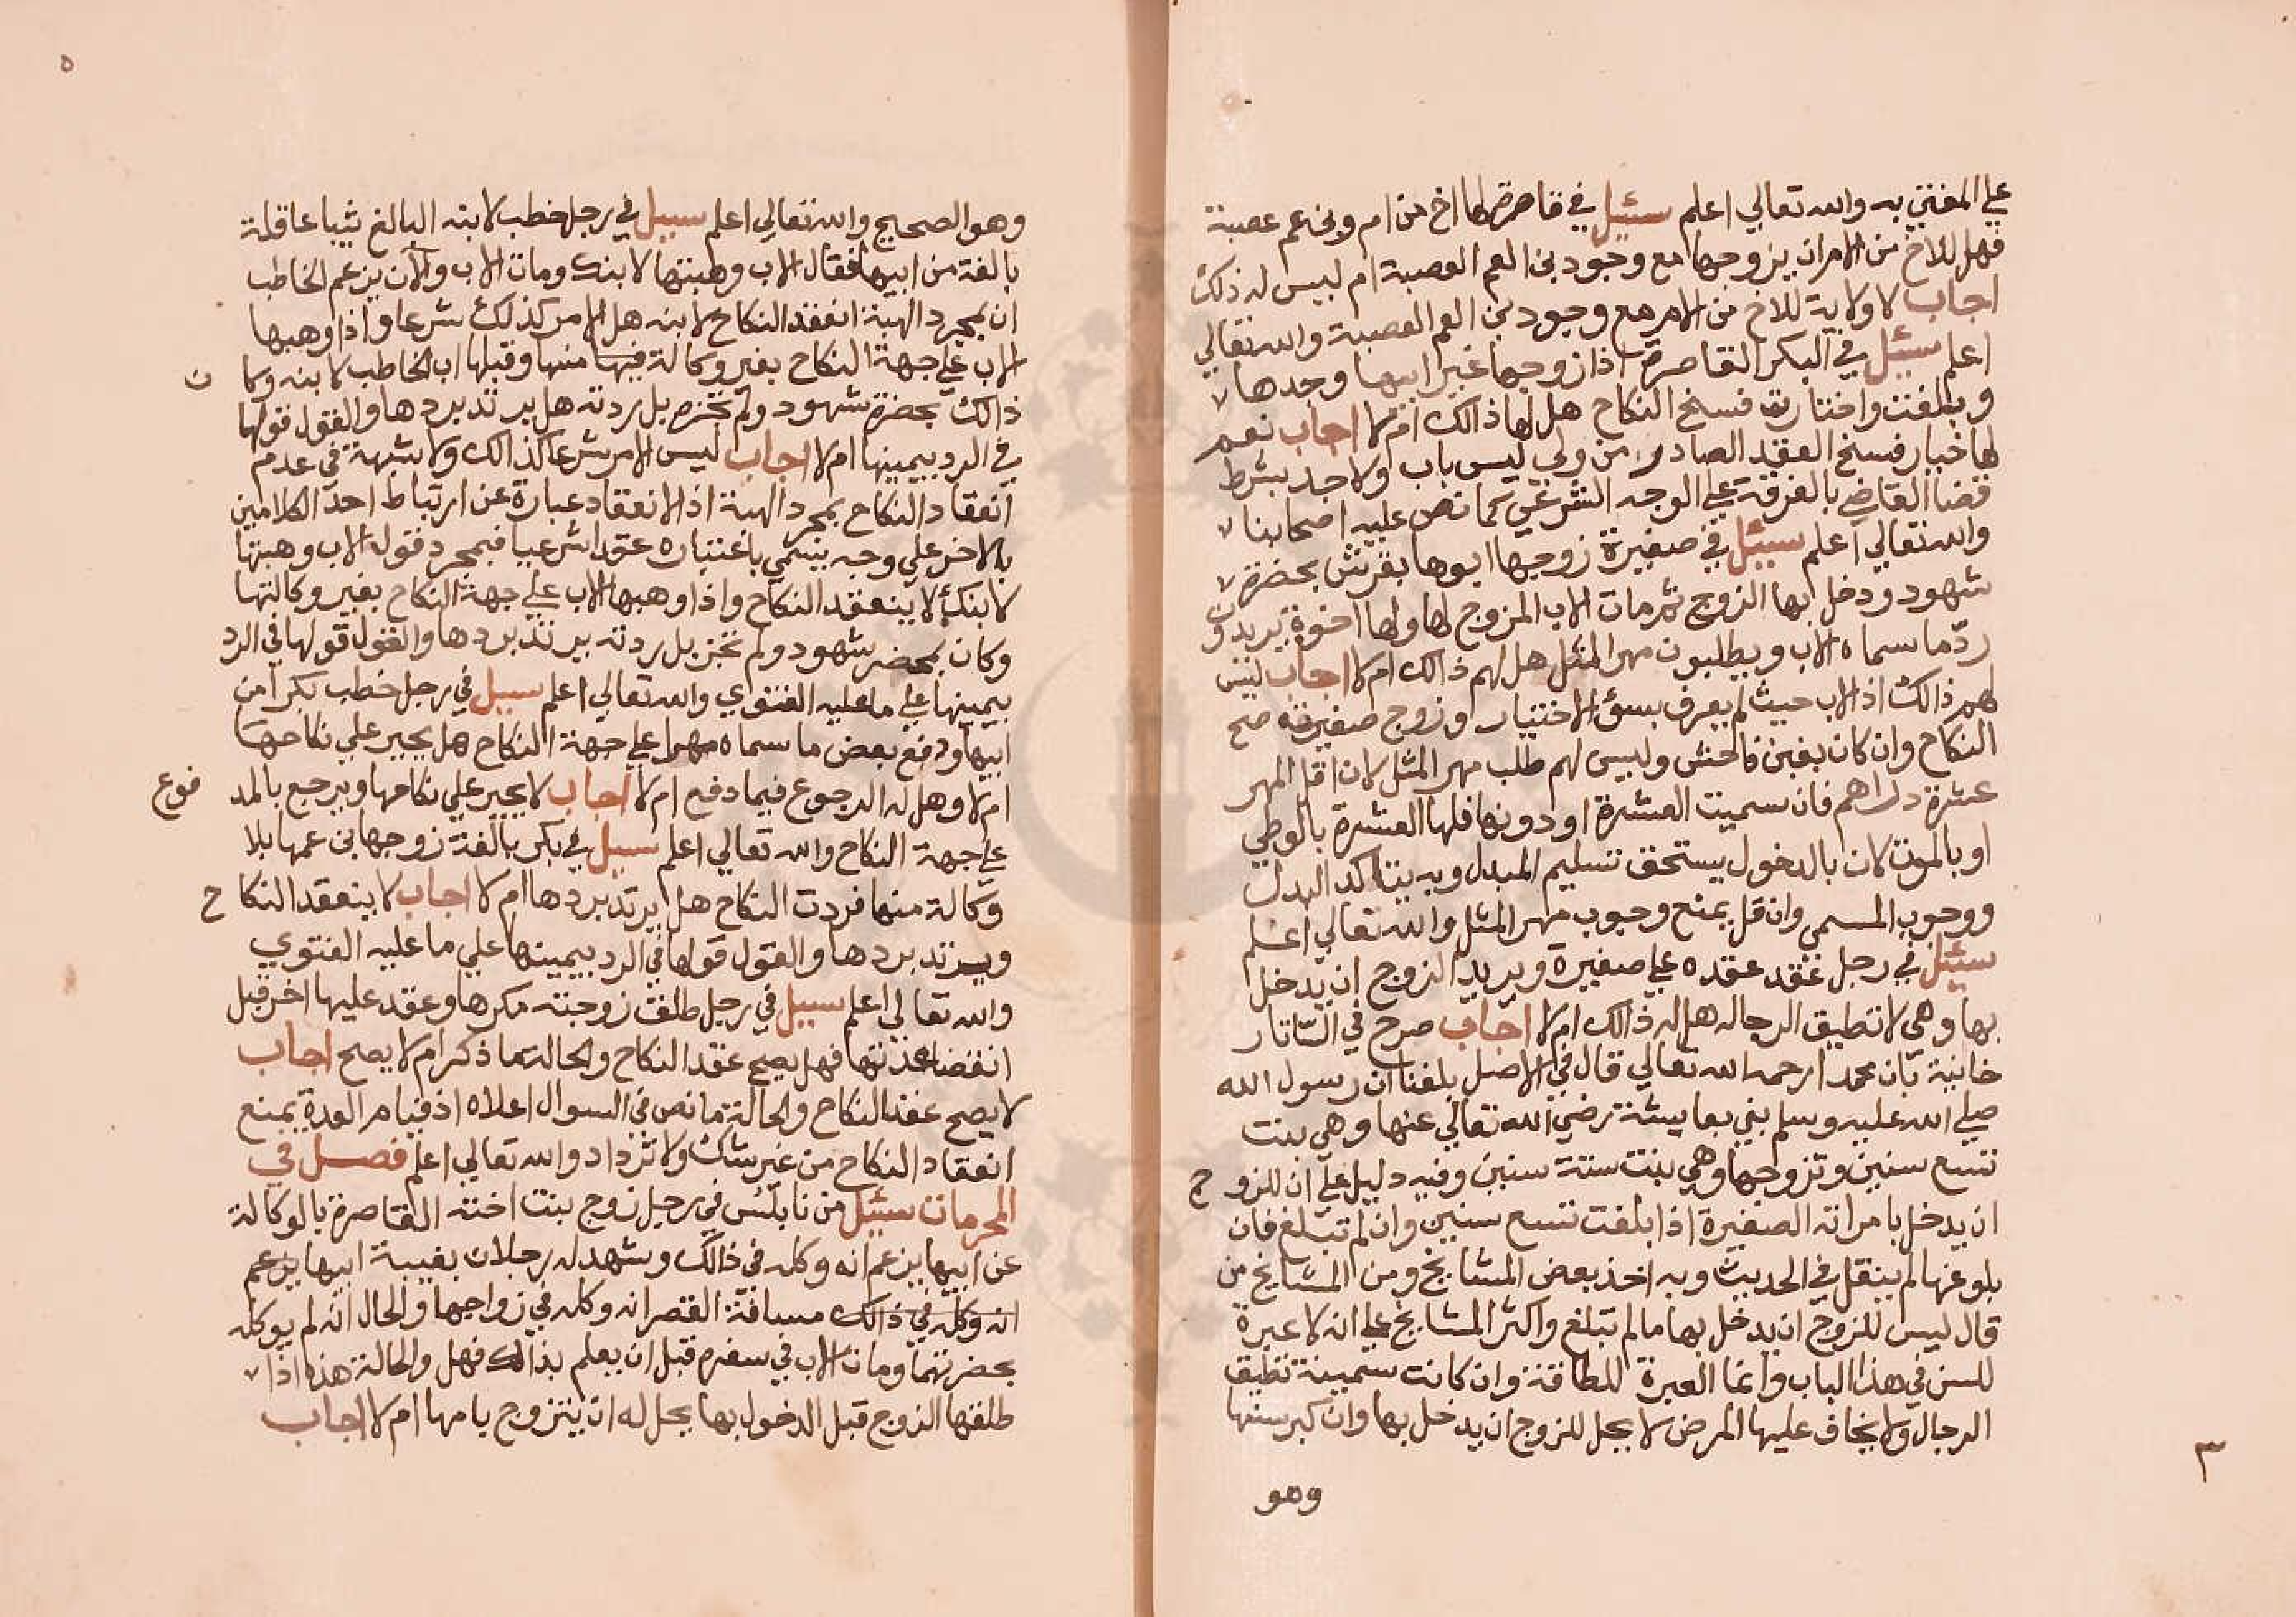 علي المفتي به والله تعالي اعلم سئيل في قاصرة لها اخ من ام وبني عم عصبة
فهل للاخ من الام ان يزوجها مع وجود بني العم العصبة ام ليس له ذلك
اجاب لا ولاية للاخ من الام مع وجود بني العم العصبة والله تعالي
اعلم سئيل في البكر القاصرة اذا زوجها غير ابيها وجدها
وبلغت واختارت فسخ النكاح هل لها ذالك ام لا اجاب نعم
لها خيار فسخ العقد الصادر من ولي ليس باب ولا جد بشرط
قضا القاضي بالفرقة علي الوجه الشرعي كما نص عليه اصحابنا
والله تعالي اعلم سئيل في صغيرة زوجها ابوها بقرش بحضرة
شهود ودخل بها الزوج ثم مات الاب المزوج لها ولها اخوة يريدون
رد ما سماه الاب ويطلبون مهر المثل هل لهم ذالك ام لا اجاب ليس
لهم ذالك اذ الاب حيث لم يعرف بسؤ الاختيار وزوج صغيرته صح
النكاح وان كان بغبن فاحش وليس لهم طلب مهر المثل لان اقل المهر
عشرة دراهم فان سميت العشرة او دونها فلها العشرة بالوطي
او بالموت لان بالدخول يستحق تسليم المبدل وبه يتاكد البدل
ووجوب المسمي وان قل يمنع وجوب مهر المثل والله تعالي اعلم
سئيل في رجل عقد عقده علي صغيرة ويريد الزوج ان يدخل
بها وهي لا تطيق الرجال هل له ذالك ام لا اجاب صرح في التاتار
خانية بان محمد ارحمه الله تعالي قال في الاصل بلغنا ان رسول الله
صلي الله عليه وسلم بني بعايشة رضي الله تعالي عنها وهي بنت
تسع سنين وتزوجها وهي بنت ستة سنين وفيه دليل علي ان للزوج
ان يدخل بامراته الصغيرة اذا بلغت تسع سنين وان لم تبلغ فان
بلوغها لم ينقل في الحديث وبه اخذ بعض المشايخ ومن المشايخ من
قال ليس للزوج ان يدخل بها ما لم تبلغ واكثر المشايخ علي انه لا عبرة
للسن في هذا الباب وانما العبرة للطاقة وان كانت سمينة تطيق
الرجال ولا يخاف عليها المرض لا يحل للزوج ان يدخل بها وان كبر سنها
وهو
٣
٥
وهو الصحيح والله تعالي اعلم سييل في رجل خطب لابنه البالغ ثيبا عاقلة
بالغة من ابيها فقال الاب وهبتها لابنك ومات الاب والآن يزعم الخاطب
ان بمجرد الهبة انعقد النكاح لابنه هل الامر كذلك شرعا واذا وهبها
الاب علي جهة النكاح بغير وكالة فيها منها وقبلها اب الخاطب لابنه وكان
ذالك بحضرة شهود ولم تجزه بل ردته هل يرتد بردها والقول قولها
في الرد بيمينها ام لا اجاب ليس الامر شرعا كذالك ولا شبهة في عدم
انعقاد النكاح بمجرد الهبة اذ الانعقاد عبارة عن ارتباط احد الكلامين
بالاخر علي وجه يسمي باعتباره عقدا شرعيا فبمجرد قول الاب وهبتها
لابنك لا ينعقد النكاح واذا وهبها الاب علي جهة النكاح بغير وكالتها
وكان بمحضر شهود ولم تجز بل ردته يرتد بردها والقول قولها في الرد
بيمينها علي ما عليه الفتوي والله تعالي اعلم سييل في رجل خطب بكرا من
ابيها ودفع بعض ما سماه مهرا علي جهة النكاح هل يجبر علي نكاحها
ام لا وهل له الرجوع فيما دفع ام لا اجاب لا يجبر علي نكاحها ويرجع بالمد فوع
علي جهة النكاح والله تعالي اعلم سييل في بكر بالغة زوجها بني عمها بلا
وكالة منها فردت النكاح هل يرتد بردها ام لا اجاب لا ينعقد النكاح
ويرتد بردها والقول قولها في الرد بيمينها علي ما عليه الفتوي
والله تعالي اعلم سييل في رجل طلقت زوجته مكرها وعقد عليها اخر قبل
انقضا عدتها فهل يصح عقد النكاح والحالة ما ذكر ام لا يصح اجاب
لا يصح عقد النكاح والحالة ما نص في السوال اعلاه اذ قيام العدة يمنع
انعقاد النكاح من غير شك ولا تزداد والله تعالي اعلم فصل في
المحرمات سئيل من نابلس في رجل زوج بنت اخته القاصرة بالوكالة
عن ابيها يزعم انه وكله في ذالك وشهد له رجلان بغيبة ابيها يزعم
انه وكله في ذالك مسافة القصر انه وكله في زواجها والحال انه لم يوكله
بحضرتهما ومات الاب في سفره قبل ان يعلم بذالك فهل والحالة هذه اذا
طلقها الزوج قبل الدخول بها يحل له ان يتزوج بامها ام لا اجاب